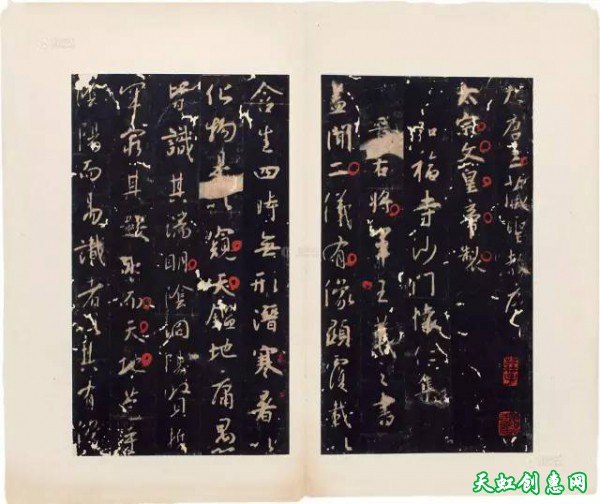 大唐三藏聖教序
太宗文皇帝製
弘福寺沙門懷仁集
晉右將軍王羲之書
蓋聞二儀有像顯覆載以
含生四時無形潛寒暑以
化物是以窺天鑑地庸愚
皆識其端明陰洞陽賢哲
罕窮其數然而天地苞乎
陰陽而易識者以其有像
天虹创惠网